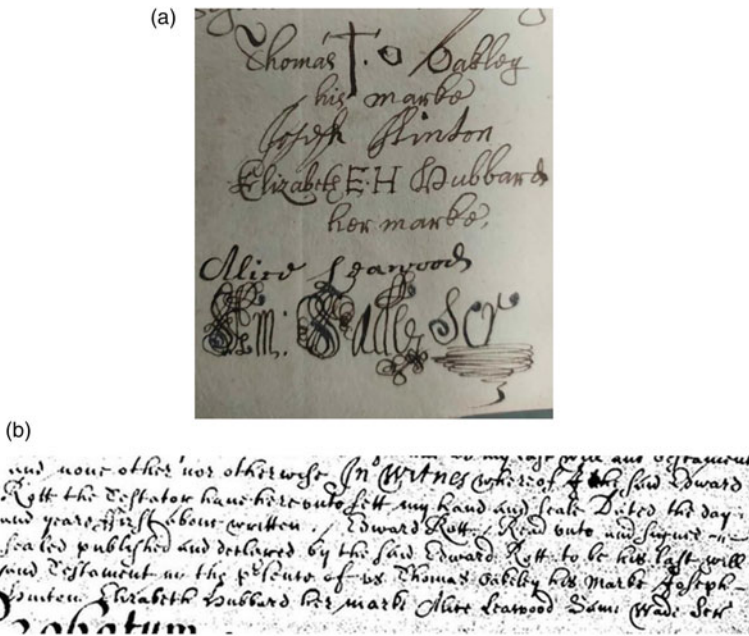 (a)
Thomas T. O Oakley
his marke
Joseph
Elizabeth E H Hubbard
her marke
Alice Leawood
Scr
(b)
my last will and Testament
and none other nor otherwise In Witnes whereof I the said Edward
Rott the Testator have hereunto sett my hand and seale Dated the day
and yeare first above written / Edward Rott / Read unto and signed
sealed published and declared by the said Edward Rott to be his last will
and Testament in the psence of us Thomas Oakeley his marke Joseph
Elizabeth Hubbard her marke Alice Leawood Sam Wade Scr
Probatum